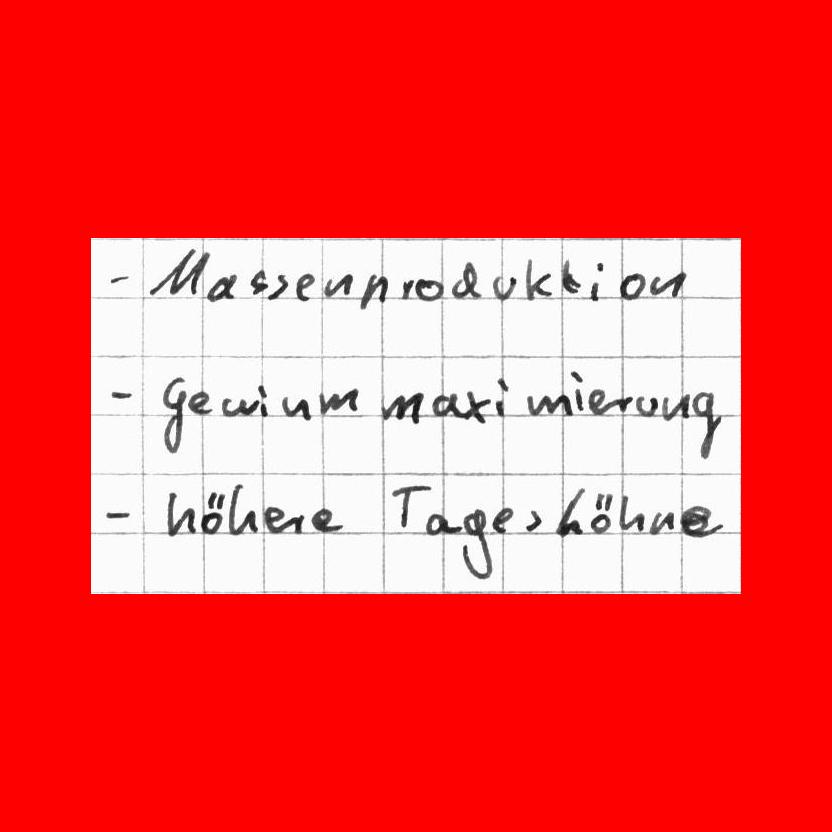 - Massenproduktion
- Gewinnmaximierung
- höhere Tageslöhne